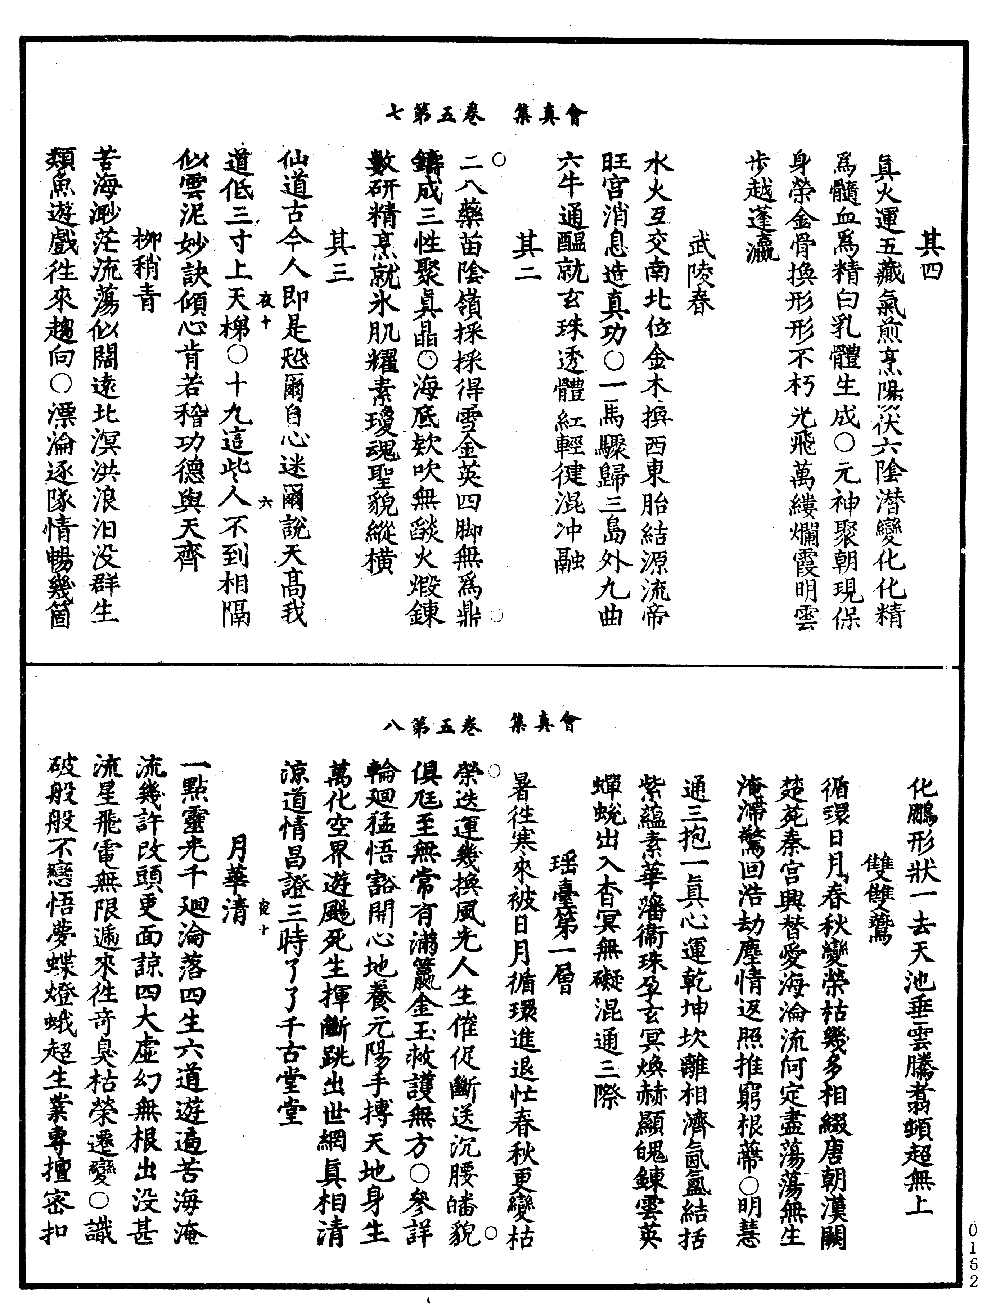 會真集　卷五第七
其四
真火運五藏氣煎烹陽茯六陰潛變化化精
為髓血為精白乳體生成○元神聚朝現保
身榮金骨換形形不朽光飛萬縷爛霞明雲
步越蓬瀛
武陵春
水火互交南北位金木撰西東胎結源流帝
旺宮消息造真功○一馬驟歸三島外九曲
六牛通醞就玄珠透體紅輕健混冲融
其二
二八藥苗陰嶺採採得雪金英四脚無為鼎
鑄成三性聚真晶○海底欵吹無燄火煅鍊
數研精烹就氷肌耀素瓊魂聖貌縱橫
其三
仙道古今人即是恐爾自心迷爾說天高我
道低三寸上天梯○十九這些人不到相隔
似雲泥妙訣傾心肯若稽功德與天齊
夜十　六
柳稍青
苦海渺茫流蕩似闊遠北溟洪浪汩没群生
類魚遊戲往來趨向○漂淪逐隊情暢幾箇
會真集　卷五第八
化鵬形狀一去天池垂雲騰翥頓超無上
雙雙鷰
循環日月春秋變榮枯幾多相綴唐朝漢闕
楚苑秦宮興替愛海淪流何定盡蕩蕩無生
淹滯驚回浩劫塵情返照推窮根蔕○明慧
通三抱一真心運乾坤坎離相濟氤氳結括
紫蘊素華潘衞珠孕玄冥煥赫顯魄鍊雲英
蟬蛻出入杳冥無礙混通三際
瑶臺第一層
暑往寒來被日月循環進退忙春秋更變枯
榮迭運幾換風光人生催促斷送沉腰皤貌
俱尫至無常有滿籯金玉救護無方○參詳
輪廻猛悟豁開心地養元陽手摶天地身生
萬化空界遊颺死生揮斷跳出世網真相清
涼道情昌證三時了了千古堂堂
夜十
月華清
一點靈光千廻淪落四生六道遊遍苦海淹
流幾許改頭更面諒四大虛幻無根出没甚
流星飛電無限遞來往竒臭枯榮遷變○識
破般般不戀悟夢蝶燈蛾超生業專擅密扣
0162